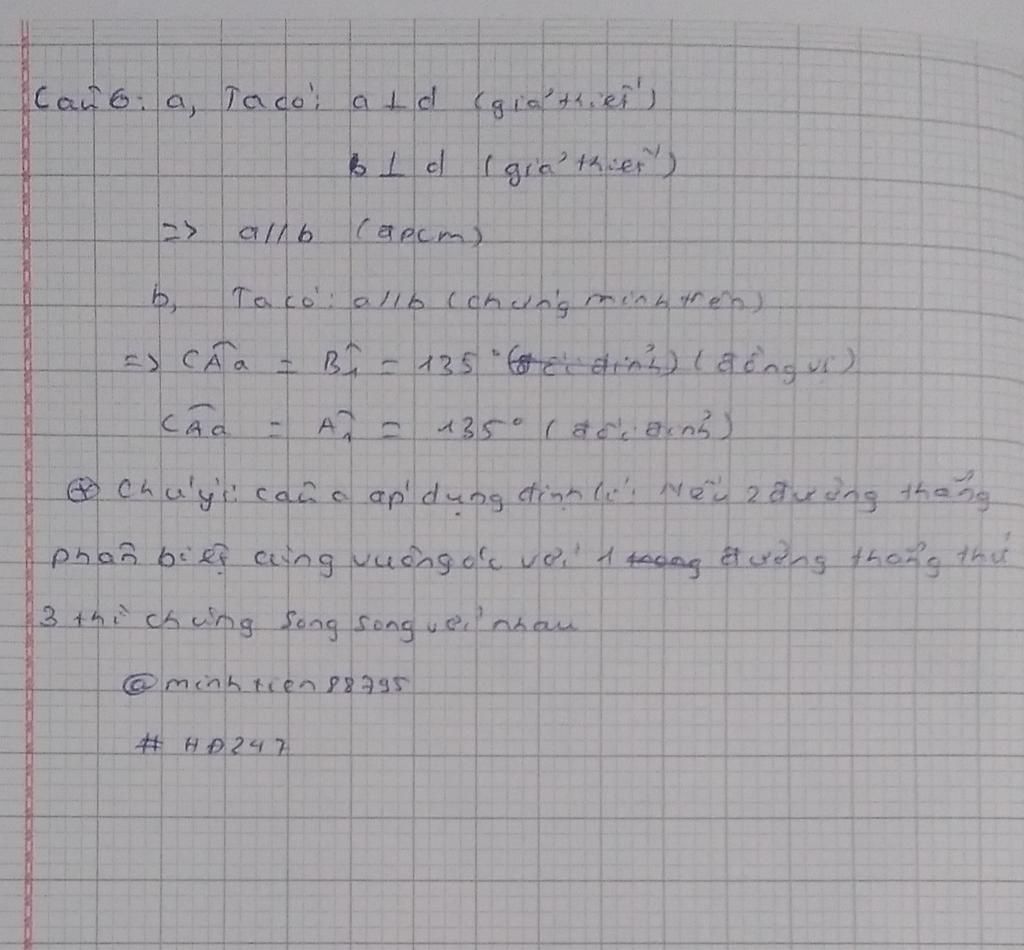 Câu 6: a, Ta có: a ⊥ d (giả thiết)
b ⊥ d (giả thiết)
=> a//b (đpcm)
b, Ta có: a//b (chứng minh trên)
=> CÂa = B̂₁ = 135° (đối đỉnh) (đồng vị)
CÂa = Â₁ = 135° (đối đỉnh)
⊛ Chú ý: câu a áp dụng định lí: Nếu 2 đường thẳng
phân biệt cùng vuông góc với 1 đường thẳng thứ
3 thì chúng song song với nhau
@minhtien88795
# HD247